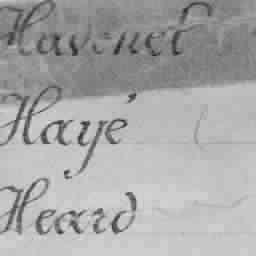 Havenel
Hayé
Héard